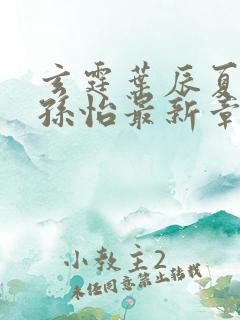 玄霆叶辰夏
孙怡最新章
小教主2
未经同意禁止转载